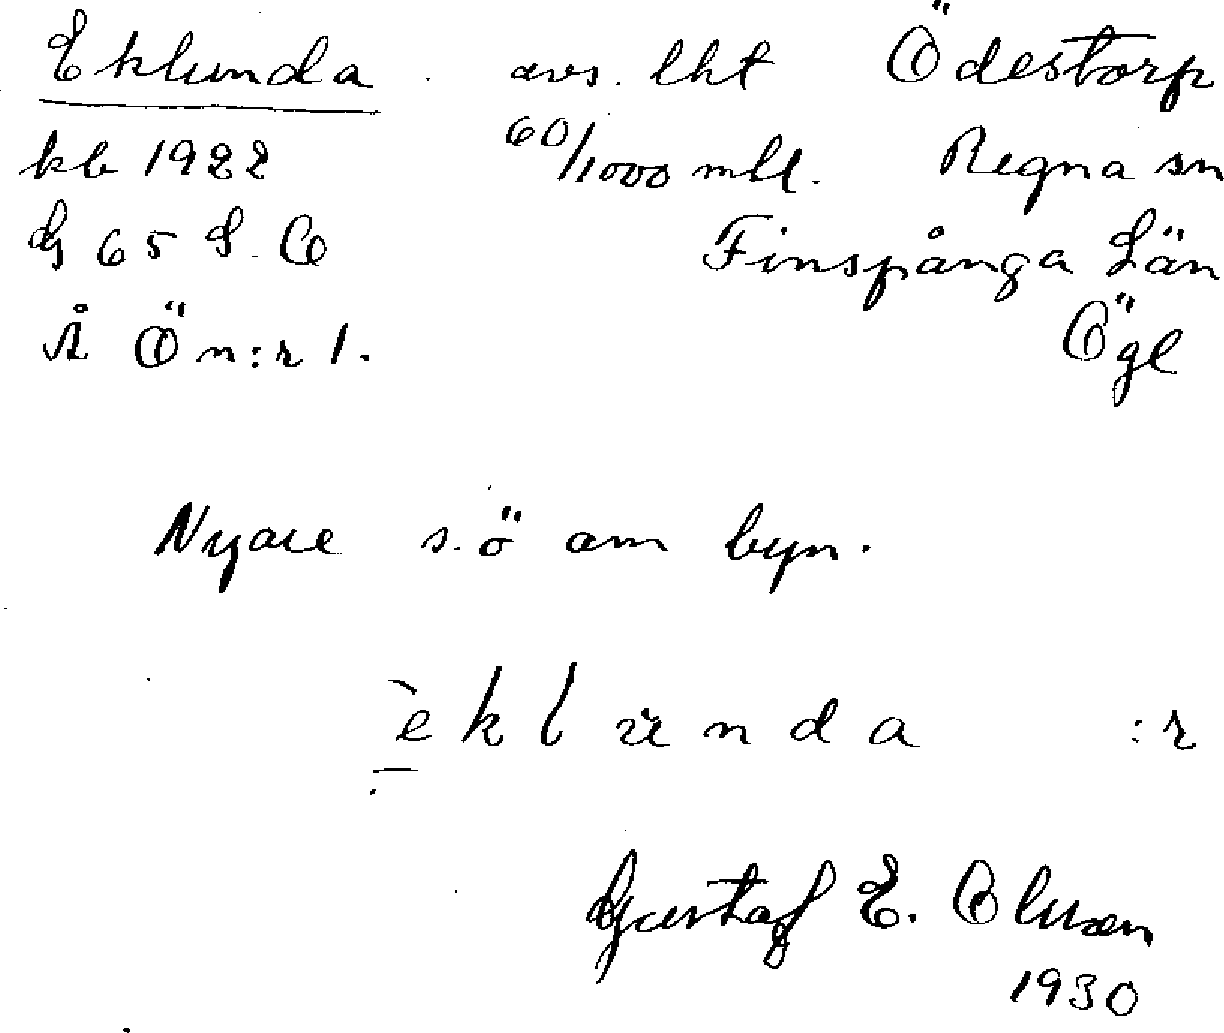 Eklunda avs. lht Ödestorp
kb 1922 60/1000 mtl. Regna sn
G 65 S. O Finspånga Län
Å Ö n:r 1. Ögl
Nyare s.ö om byn.
èklunda :r
Gustaf E. Olsson
1930